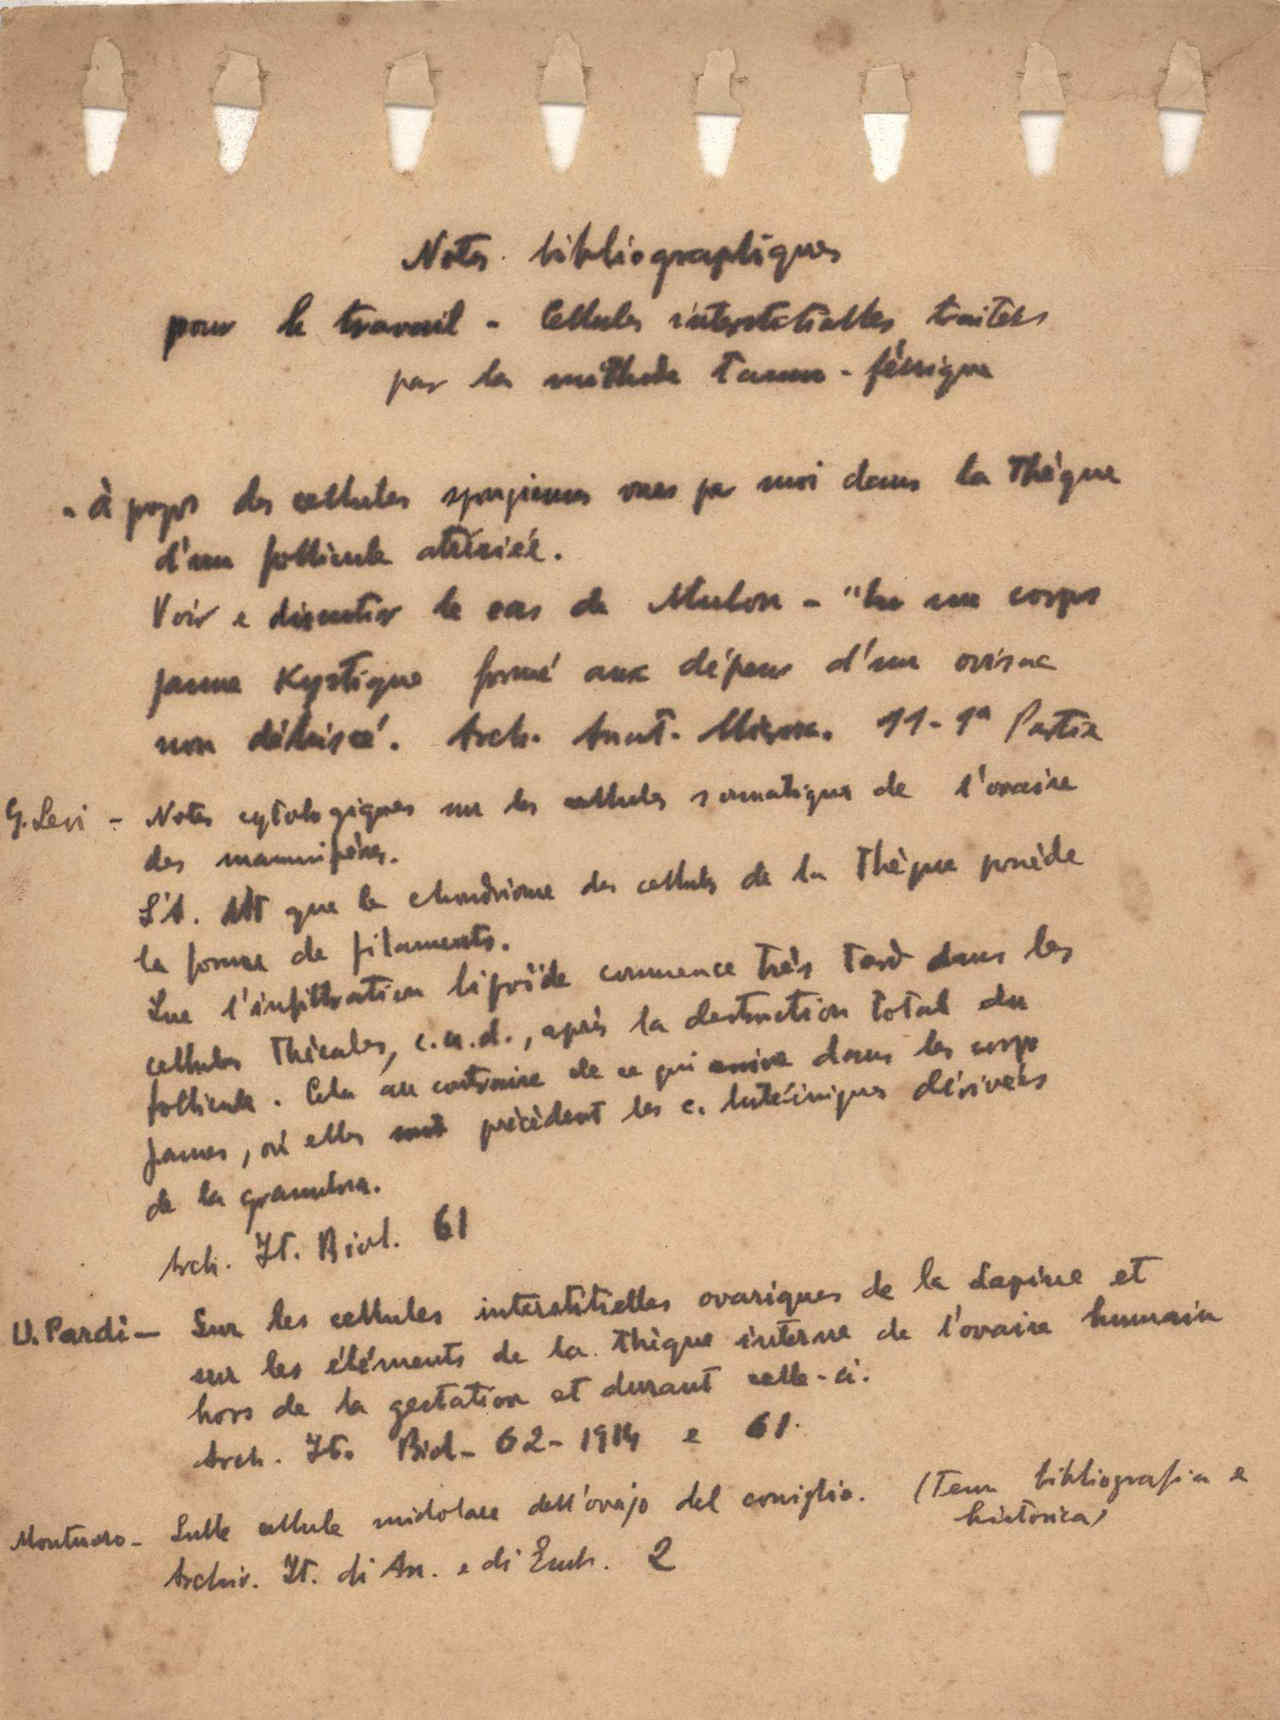 Notes bibliographiques
pour le travail - Cellules interstitielles traitées
par la méthode tanno-férrique
- à propos des cellules spongieuses vues par moi dans la Thèque
d'un follicule atrésiée.
Voir e discutir le cas de Mulon - "Sur un corps
jaune Kystique formé aux dépens d'un ovisac
non déhiscé. Arch. Anat. Micros. 11-1ª Partie
G. Levi - Notes cytologiques sur les cellules somatiques de l'ovaire
des mammifères.
L'A. dit que le chondriome des cellules de la Thèque possède
la forme de filaments.
Que l'infiltration lipoïde commence très tard dans les
cellules Thécales, c.a.d., après la destruction total du
follicule. Cela au contraire de ce qui arrive dans les corps
jaunes, où elles précèdent les c. lutéiniques dérivées
de la granulosa.
Arch. It. Biol. 61
U. Pardi - Sur les cellules interstitielles ovariques de la Lapine et
sur les éléments de la Thèque interne de l'ovaire humain
hors de la gestation et durant celle-ci.
Arch. It. Biol - 62 - 1914 e 61.
Montuoro - Sulle cellule midolare dell'ovajo del coniglio. (Tem bibliografia e
historica)
Archiv. It. di An. e di Emb. 2